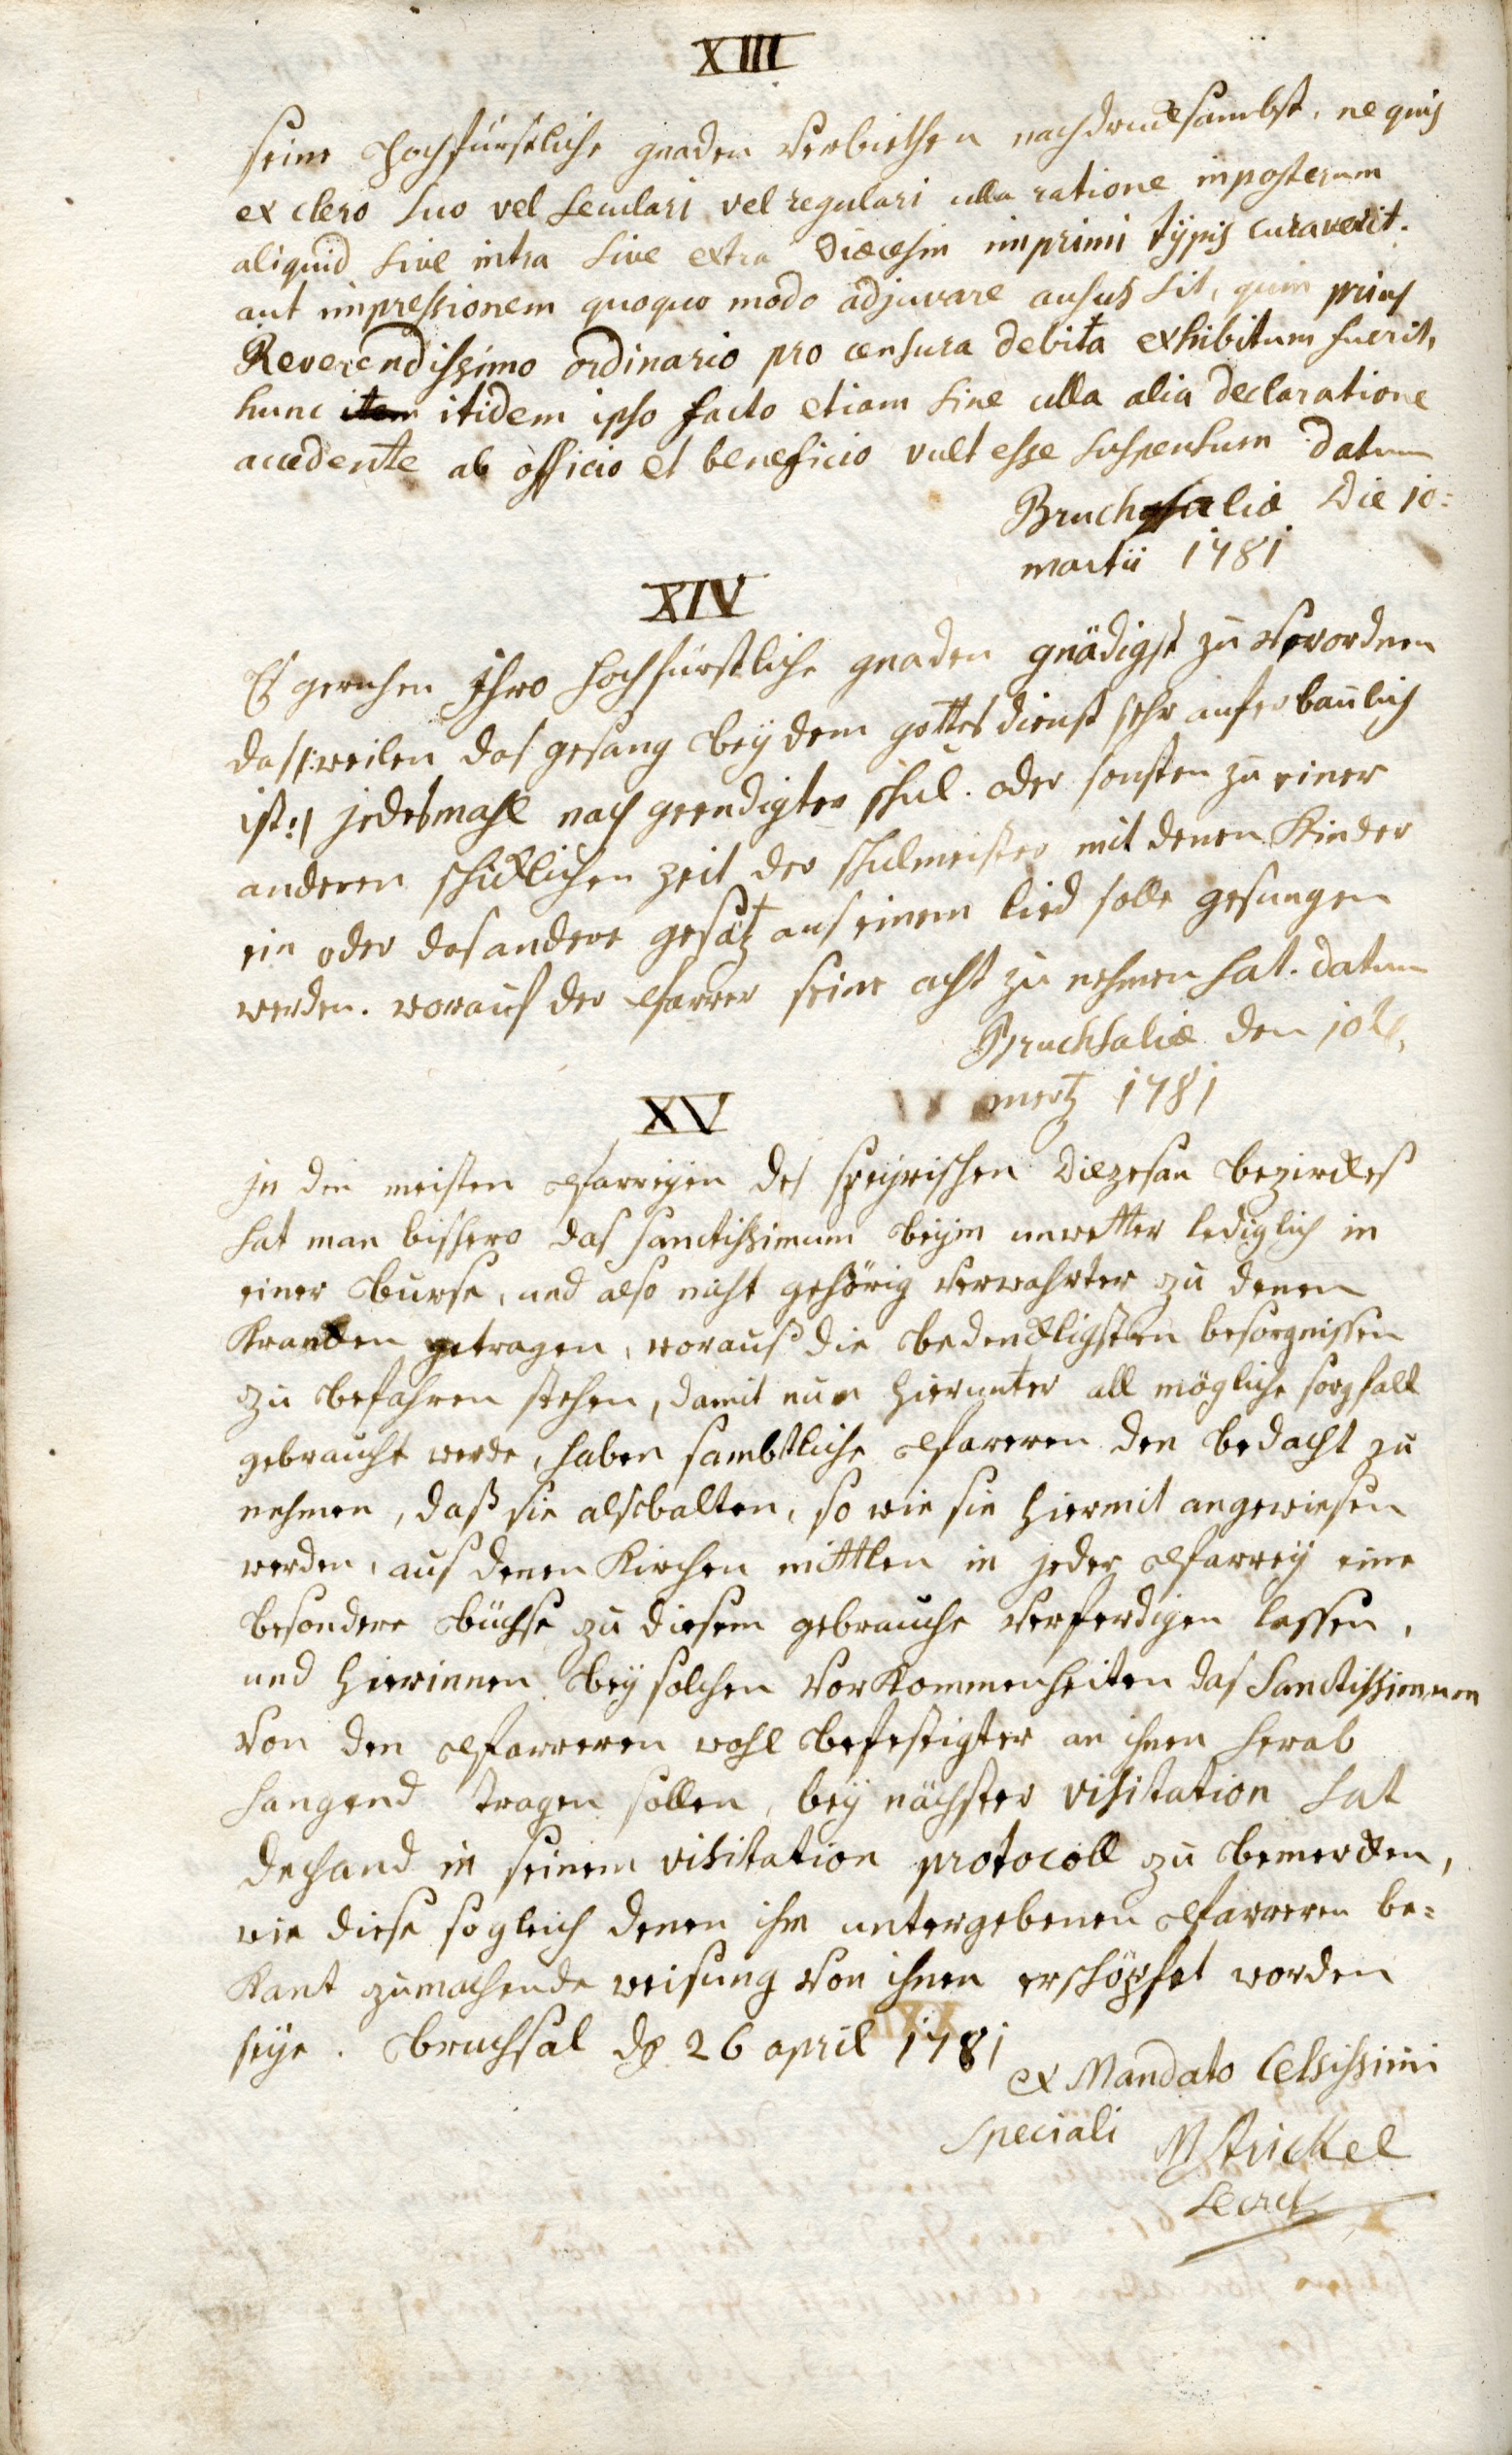 XIII
seine Hochfürstliche gnaden verbiethen nachdrucksambst, ne quis
ex clero suo vel seculari vel regulari ulla ratione inposterum
aliquid sive intra sive extra Diœcesin imprimi typis curaverit.
aut impressionem quoquo modo adjuvare ausus sit, quin prius
Reverendissimo ordinario pro censura debita exhibitum fuerit,
hunc item itidem ipso facto etiam sine ulla alia declaratione
accedente ab officio et beneficio vult esse suspensum datum
Bruchsaliæ Die 10=
martii 1781
XIV
Es geruhen Ihro hochfürstliche gnaden gnädigst zu verordnen
das /: weilen das gesang bey dem gottes dienst sehr auferbaulich
ist :/ jedesmahl nach geendigter schul. oder sonsten zu einer
anderen schicklichen zeit der schulmeister mit denen Kinder
ein oder das andere gesätz aus einem lied solle gesungen
werden. worauf der Pfarrer seine acht zu nehmen hat. datum
Bruchsaliæ den 10t.
mertz 1781
XV
In den meisten Pfarreyen des speyrischen Diœzesan bezirckes
hat man bishero das sanctissimum beym unwetter lediglich in
einer Burse, und also nicht gehörig verwahrter zu denen
Krancken getragen, worauß die bedencklichsten besorgnissen
zu befahren stehen, damit nun hierunter all mögliche sorgfalt
gebraucht werde, haben sambtliche Pfareren den bedacht zu
nehmen, daß sie alsobalten, so wie sie hiermit angewiesen
werden, aus denen Kirchen mittlen in jeder Pfarrey eine
besondere büchse zu diesem gebrauche verferdigen lassen,
und hierinnen bey solchen vorkommenheiten das Sanctissimum
von den Pfarreren wohl befestigter an ihnen herab
hangend tragen sollen, bey nächster visitation hat
dechand in seinem visitation protocoll zu bemercken,
wie diese sogleich denen ihm untergebenen Pfarreren be=
kant zumachende weisung von ihnen erschöpfet worden
seye. Bruchsal d 26 april 1781
ex Mandato Celsissimi
speciali M Strickel
Secret